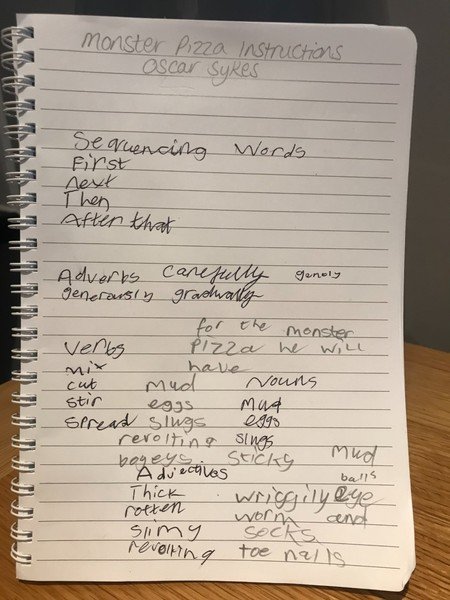 Monster Pizza Instructions
Oscar Sykes
Sequencing Words
First
next
Then
After that
Adverbs carefully genoly
generously gradually
for the monster
verbs pizza he will
mix have
cut mud Nouns
stir eggs mud
spread slugs eggs
revolting slugs
bogeys sticky mud
Adjectives balls
Thick wriggily eye
rotten worm and
slimy socks
revolting toe nalls